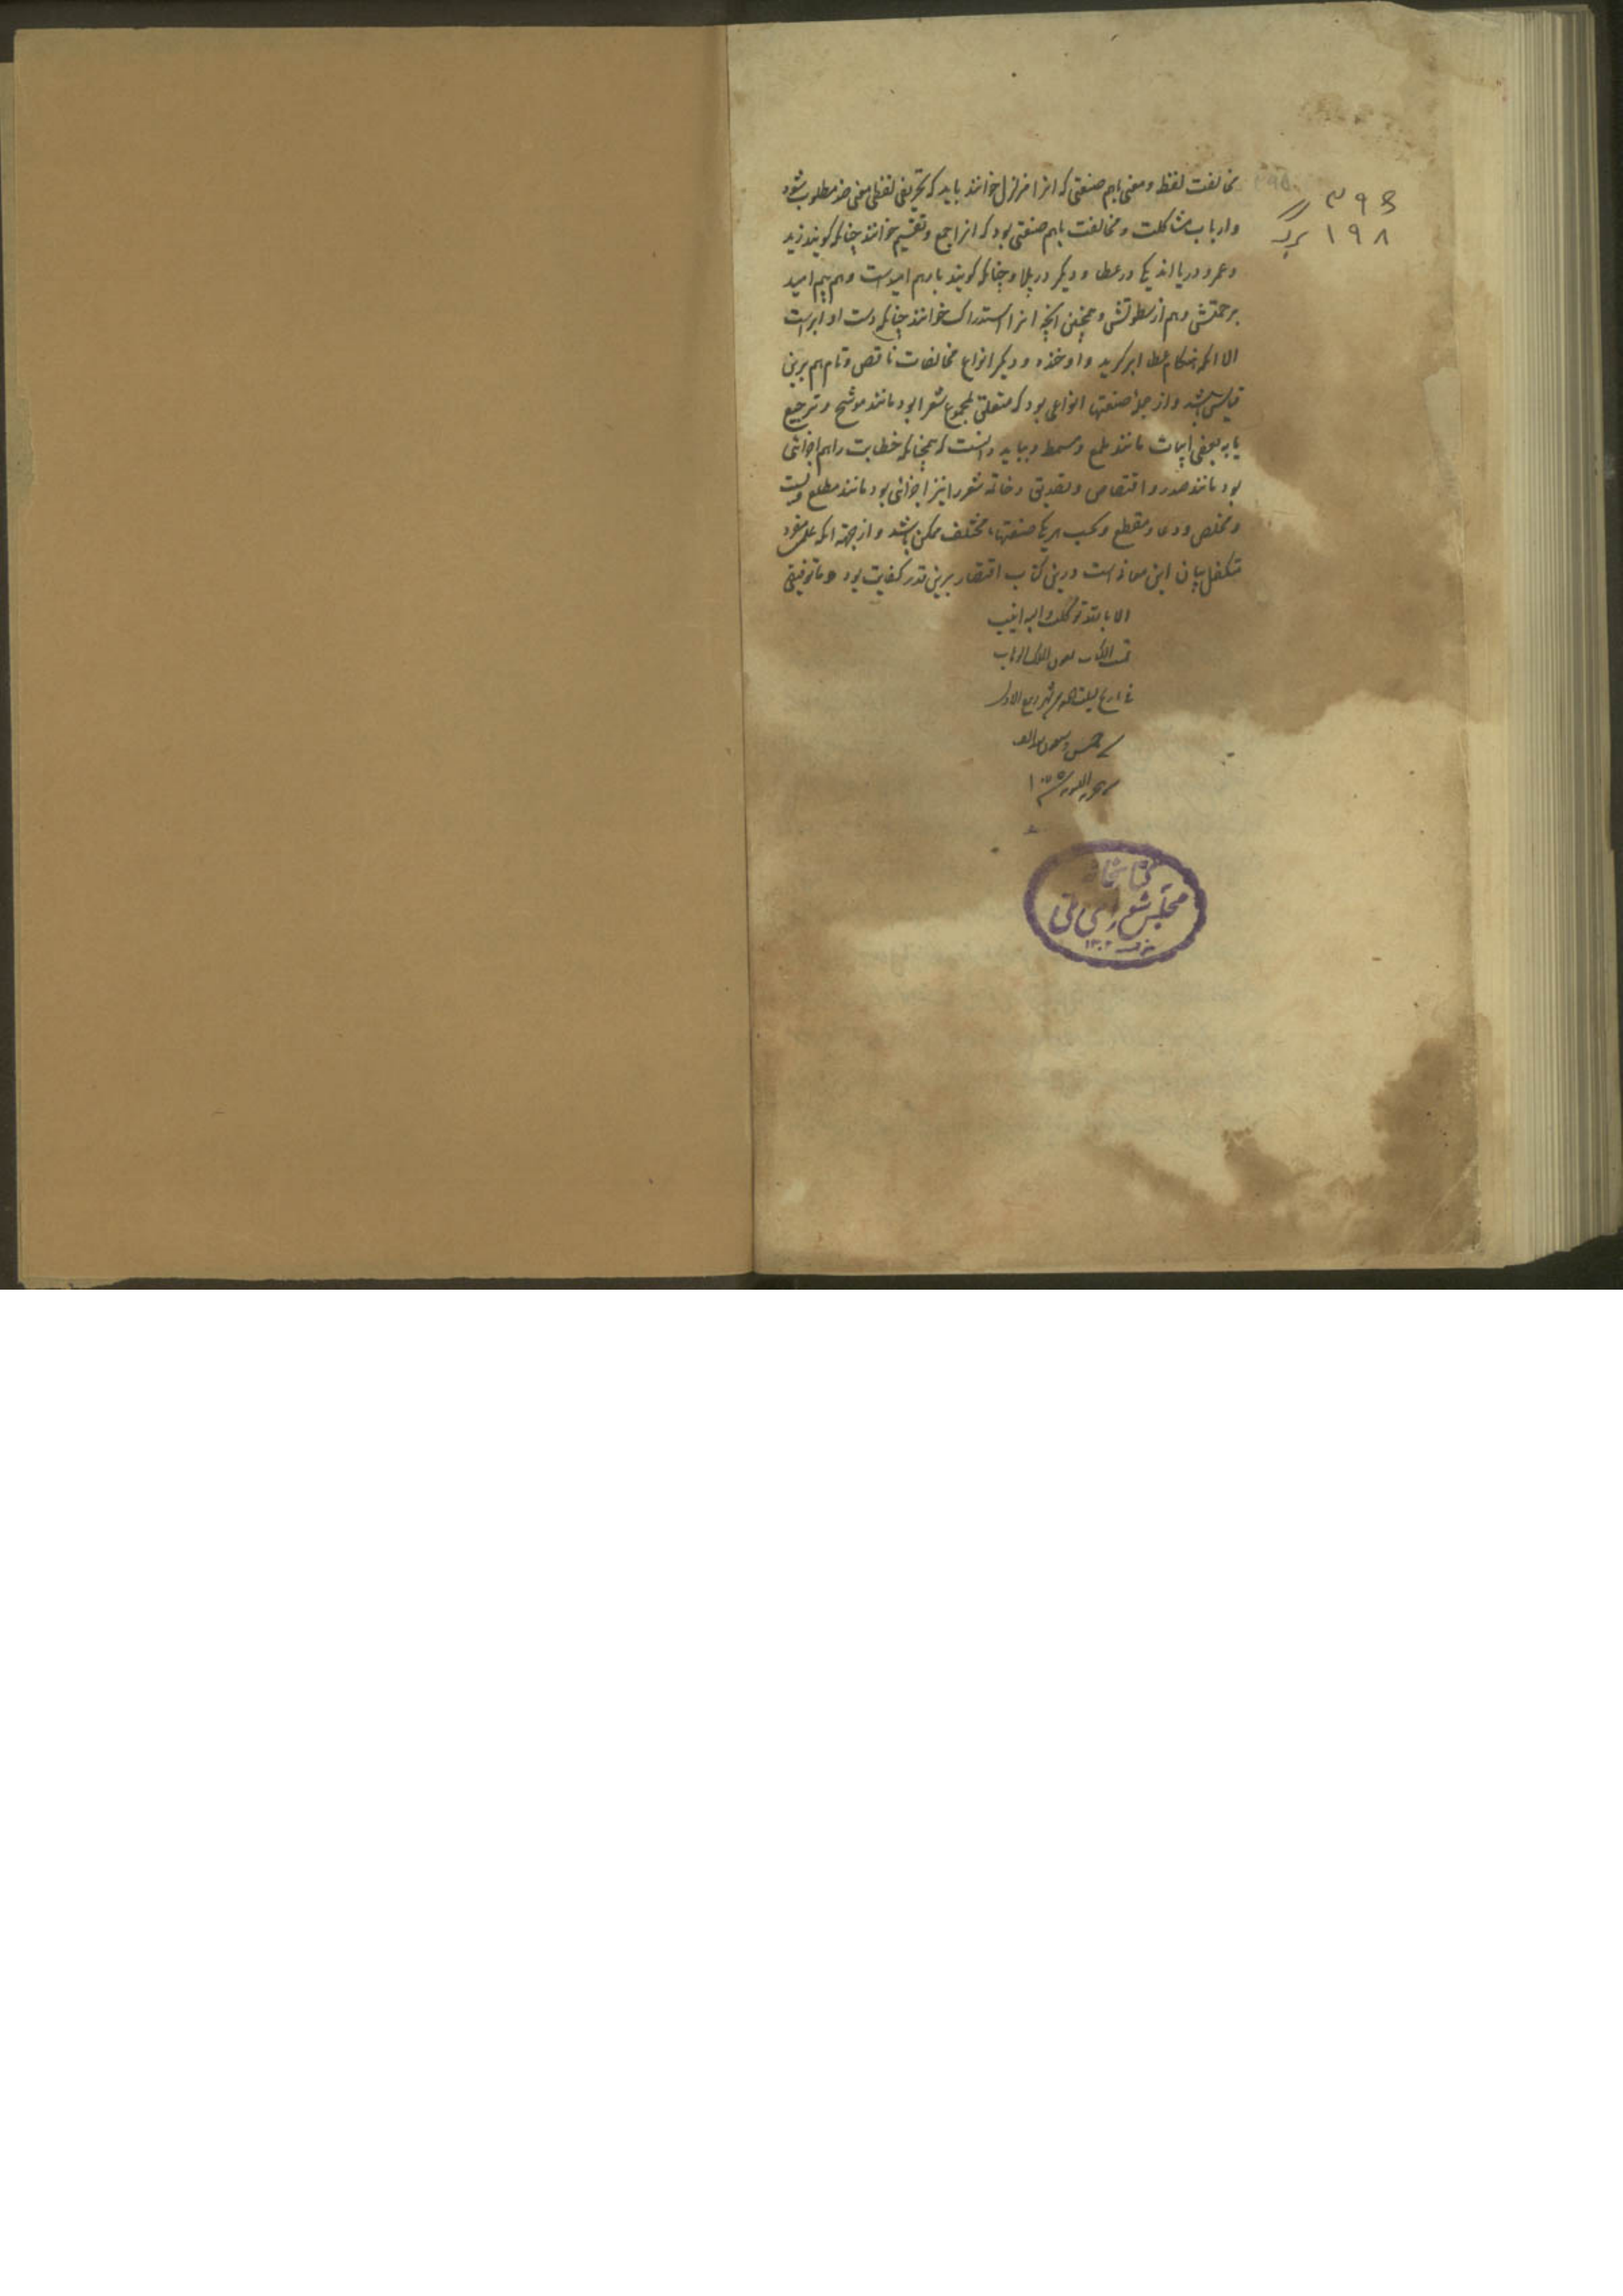 مخالفت لفظ و معنی باهم صنعتی که انرا مزلزل خوانند باید که بتحریفی لفظی معنی ضد مطلوب شود
واز باب مشاکلت و مخالفت باهم صنعتی بود که انرا جمع و تقسیم خوانند چنانکه کویند زید
و عمرو دریا اند یکی در عطا و دیکر در بلا و چنانکه کویند بارهم امیدست و هم بیم امید
برحمتش و هم از سطوتش و همچنین آنچه انرا استدراک خوانند چنانکه دست او ابرست
الا انکه هنکام عطا ابر کرید و او خندد و دیکر انواع مخالفات ناقص و تام هم برین
قیاس باشد و از جمله صنعتها انواعی بود که متعلق بمجموع شعر بود مانند موشح و ترجیع
یا به بعضی ابیات مانند ملمع و مسمط و بباید دانست که همچنانکه خطابت را هم اجزائی
بود مانند صدر و اقتصاص و تصدیق و خاتمه شعر را نیز اجزائی بود مانند مطلع و
و مخلص و مقطع و بحسب هر یکی صنعتهاء مختلف ممکن باشد و از جهته انکه علمی مفرد
متکفل بیان این معانی است درین کتاب اقتصار برین قدر کفایت بود و ما توفیقی
الا بالله توکلت و الیه انیب
تمت الکتاب بعون الملک الوهاب
فی تاریخ شهر ربیع الاول
سنه خمس و خمسین و الف
من هجرة النبویه ۱۰۵۵
۳۹۵
۳۹۶
۱۹۸ برگ
کتابخانه
مجلس شورای ملی
۱۳۰۲